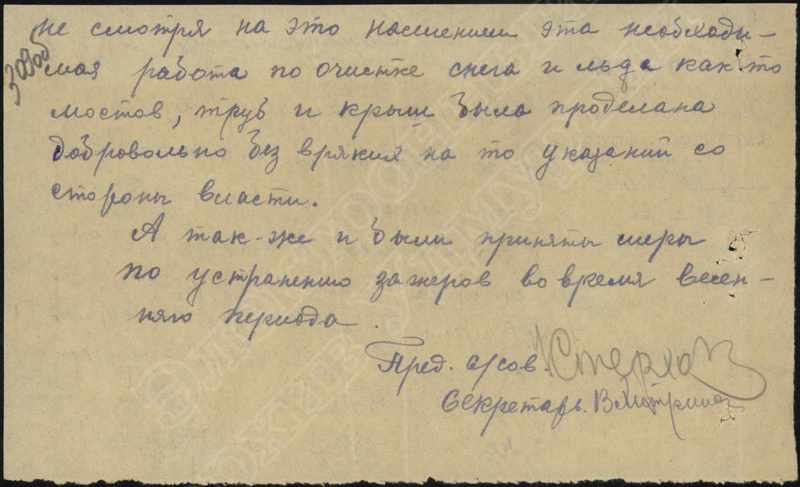 не смотря на это насилением эта необходи-
308об
мая работа по очистке снега и льда как то
мостов, труб и крыш была проделана
добровольно без всякия на то указаний со
стороны власти.
А так-же и были приняты меры
по устранению заторов во время весен-
няго периода.
Пред. с/сов.
Секретарь.